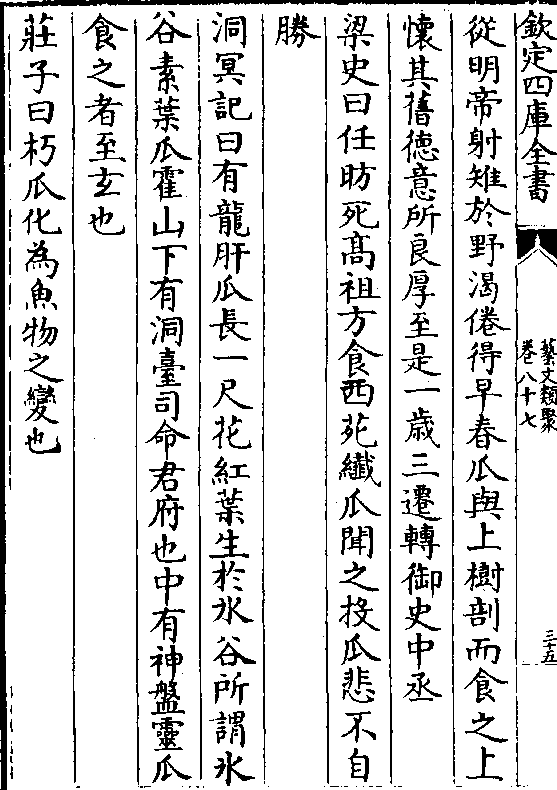 欽定四庫全書
藝文類聚
卷八十七
三十五
從明帝射雉於野渴倦得早春瓜與上樹剖而食之上
懷其舊德意所良厚至是一歲三遷轉御史中丞
梁史曰任昉死髙祖方食西苑纎瓜聞之投瓜悲不自
勝
洞冥記曰有龍肝瓜長一尺花紅葉生於氷谷所謂氷
谷素葉瓜霍山下有洞臺司命君府也中有神盤靈瓜
食之者至玄也
莊子曰朽瓜化為魚物之變也